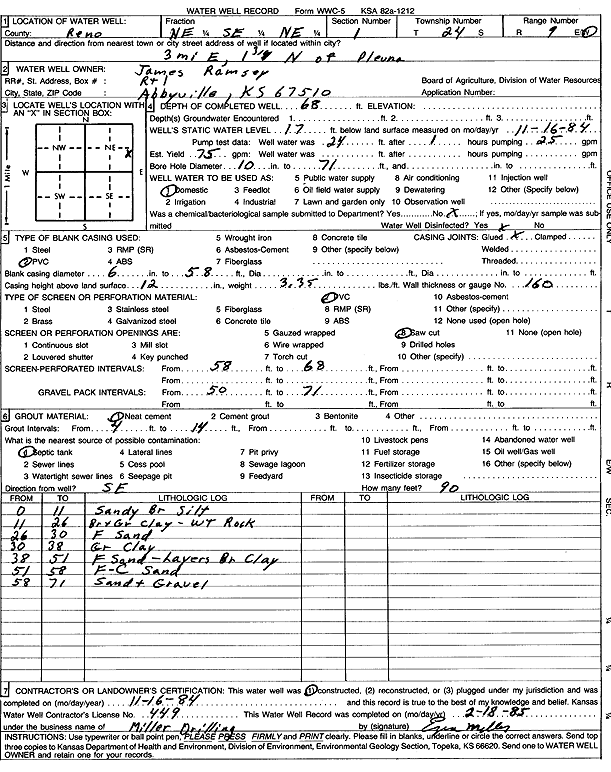 WATER WELL RECORD Form WWC-5 KSA 82a-1212
1 LOCATION OF WATER WELL: Fraction Section Number Township Number Range Number
County: Reno NE ¼ SE ¼ NE ¼ 1 T 24 S R 9 E/W
Distance and direction from nearest town or city street address of well if located within city?
3 mi E, 1 3/4 N of Plevna
2 WATER WELL OWNER: James Ramsey
RR#, St. Address, Box # : Rt 1 Board of Agriculture, Division of Water Resources
City, State, ZIP Code : Abbyville, KS 67510 Application Number:
3 LOCATE WELL'S LOCATION WITH AN "X" IN SECTION BOX:
N
NW NE
X
W E
SW SE
S
1 Mile
4 DEPTH OF COMPLETED WELL 68 ft. ELEVATION:
Depth(s) Groundwater Encountered 1. ft. 2. ft. 3. ft.
WELL'S STATIC WATER LEVEL 17 ft. below land surface measured on mo/day/yr 11-16-84
Pump test data: Well water was 24 ft. after 1 hours pumping 25 gpm
Est. Yield 75 gpm: Well water was ft. after hours pumping gpm
Bore Hole Diameter 10 in. to 71 ft., and in. to ft.
WELL WATER TO BE USED AS: 5 Public water supply 8 Air conditioning 11 Injection well
1 Domestic 3 Feedlot 6 Oil field water supply 9 Dewatering 12 Other (Specify below)
2 Irrigation 4 Industrial 7 Lawn and garden only 10 Observation well
Was a chemical/bacteriological sample submitted to Department? Yes No X ; If yes, mo/day/yr sample was submitted
Water Well Disinfected? Yes X No
5 TYPE OF BLANK CASING USED: 5 Wrought iron 8 Concrete tile CASING JOINTS: Glued X Clamped
1 Steel 3 RMP (SR) 6 Asbestos-Cement 9 Other (specify below) Welded
2 PVC 4 ABS 7 Fiberglass Threaded
Blank casing diameter 6 in. to 58 ft., Dia in. to ft., Dia in. to ft.
Casing height above land surface 12 in., weight 3.35 lbs./ft. Wall thickness or gauge No. 160
TYPE OF SCREEN OR PERFORATION MATERIAL: 7 PVC 10 Asbestos-cement
1 Steel 3 Stainless steel 5 Fiberglass 8 RMP (SR) 11 Other (specify)
2 Brass 4 Galvanized steel 6 Concrete tile 9 ABS 12 None used (open hole)
SCREEN OR PERFORATION OPENINGS ARE: 5 Gauzed wrapped 8 Saw cut 11 None (open hole)
1 Continuous slot 3 Mill slot 6 Wire wrapped 9 Drilled holes
2 Louvered shutter 4 Key punched 7 Torch cut 10 Other (specify)
SCREEN-PERFORATED INTERVALS: From 58 ft. to 68 ft., From ft. to ft.
From ft. to ft., From ft. to ft.
GRAVEL PACK INTERVALS: From 50 ft. to 71 ft., From ft. to ft.
From ft. to ft., From ft. to ft.
6 GROUT MATERIAL: 1 Neat cement 2 Cement grout 3 Bentonite 4 Other
Grout Intervals: From 4 ft. to 14 ft., From ft. to ft., From ft. to ft.
What is the nearest source of possible contamination: 10 Livestock pens 14 Abandoned water well
1 Septic tank 4 Lateral lines 7 Pit privy 11 Fuel storage 15 Oil well/Gas well
2 Sewer lines 5 Cess pool 8 Sewage lagoon 12 Fertilizer storage 16 Other (specify below)
3 Watertight sewer lines 6 Seepage pit 9 Feedyard 13 Insecticide storage
Direction from well? SE How many feet? 90
FROM TO LITHOLOGIC LOG FROM TO LITHOLOGIC LOG
0 11 Sandy Br Silt
11 26 Br + Gr Clay - WT Rock
26 30 F Sand
30 38 Gr Clay
38 51 F Sand - Layers Br Clay
51 58 F-C Sand
58 71 Sand + Gravel
7 CONTRACTOR'S OR LANDOWNER'S CERTIFICATION: This water well was (1) constructed, (2) reconstructed, or (3) plugged under my jurisdiction and was
completed on (mo/day/year) 11-16-84 and this record is true to the best of my knowledge and belief. Kansas
Water Well Contractor's License No. 449 This Water Well Record was completed on (mo/day/yr) 2-18-85
under the business name of Miller Drilling by (signature)
INSTRUCTIONS: Use typewriter or ball point pen, PLEASE PRESS FIRMLY and PRINT clearly. Please fill in blanks, underline or circle the correct answers. Send top
three copies to Kansas Department of Health and Environment, Division of Environment, Environmental Geology Section, Topeka, KS 66620. Send one to WATER WELL
OWNER and retain one for your records.
OFFICE USE ONLY
T
R
E/W
SEC